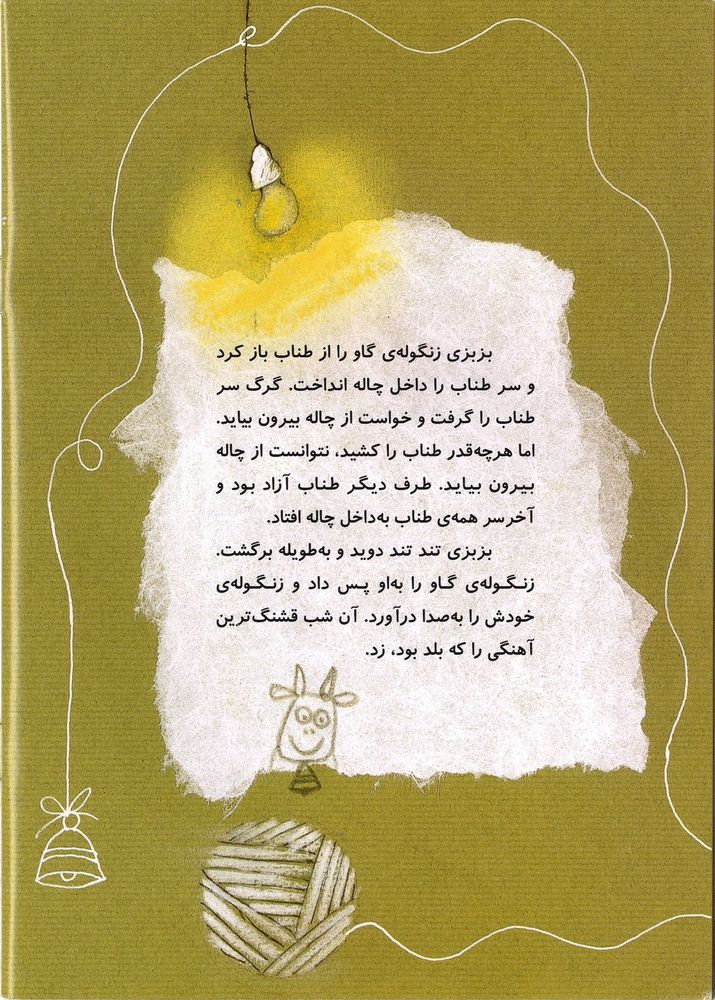 بزبزی زنگوله‌ی گاو را از طناب باز کرد
و سر طناب را داخل چاله انداخت. گرگ سر
طناب را گرفت و خواست از چاله بیرون بیاید.
اما هرچه‌قدر طناب را کشید، نتوانست از چاله
بیرون بیاید. طرف دیگر طناب آزاد بود و
آخرسر همه‌ی طناب به‌داخل چاله افتاد.
بزبزی تند تند دوید و به‌طویله برگشت.
زنگوله‌ی گاو را به‌او پس داد و زنگوله‌ی
خودش را به‌صدا درآورد. آن شب قشنگ‌ترین
آهنگی را که بلد بود، زد.